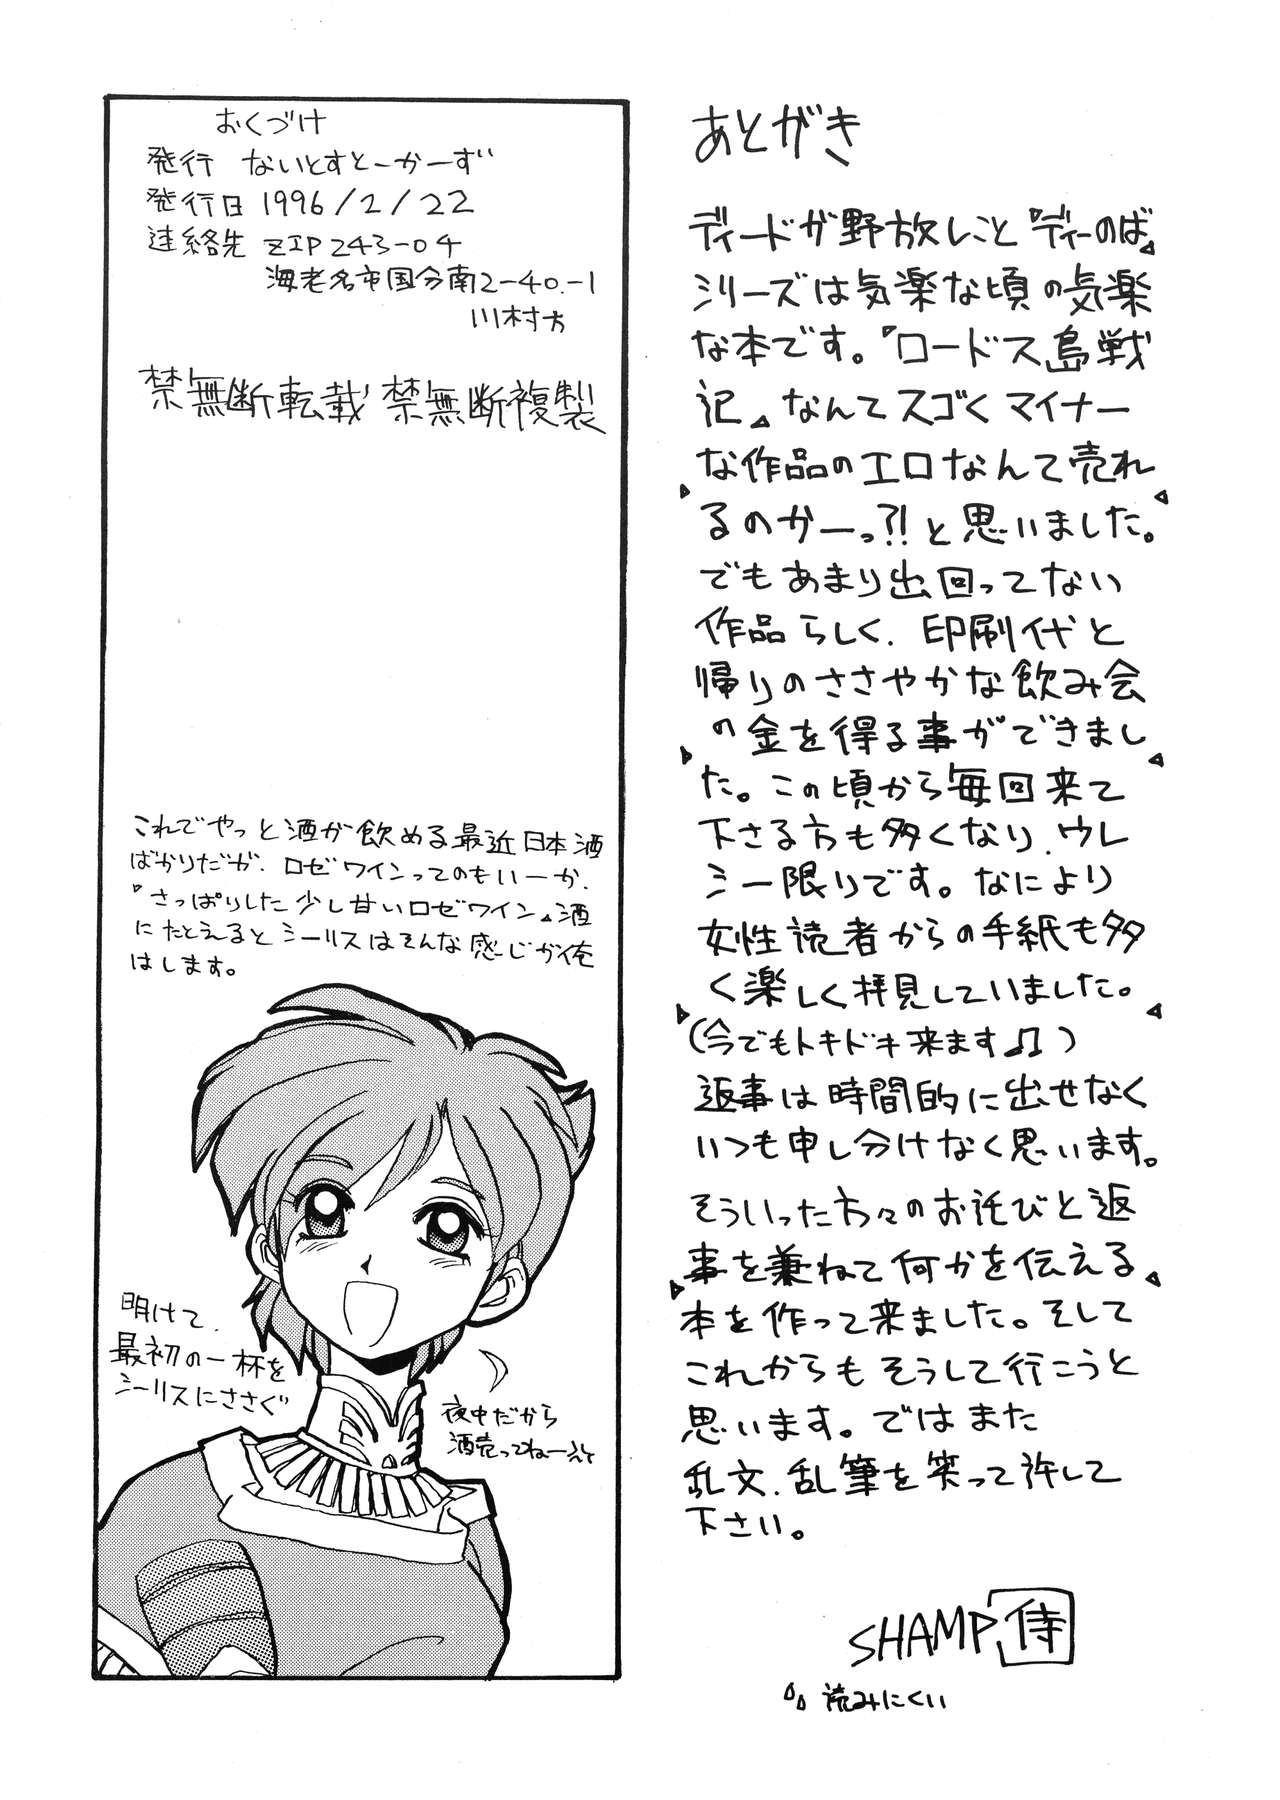 あとがき
ディードが野放しこと『ディーのば』
シリーズは気楽な頃の気楽
な本です。『ロードス島戦
記』なんてスゴくマイナー
な作品のエロなんて売れ
るのかーっ?!と思いました。
でもあまり出回ってない
作品らしく、印刷代と
帰りのささやかな飲み会
の金を得る事ができまし
た。この頃から毎回来て
下さる方も多くなり、ウレ
シー限りです。なにより
女性読者からの手紙も多
く楽しく拝見していました。
(今でもトキドキ来ます♫)
返事は時間的に出せなく
いつも申し分けなく思います。
そういった方々のお詫びと返
事を兼ねて何かを伝える
本を作って来ました。そして
これからもそうして行こうと
思います。ではまた
乱文、乱筆を笑って許して
下さい。
SHAMP侍
読みにくい
おくづけ
発行 ないとすとーかーず
発行日 1996/2/22
連絡先 ZIP 243-04
海老名市国分南2-40-1
川村方
禁無断転載 禁無断複製
これでやっと酒が飲める最近日本酒
ばかりだが、ロゼワインってのもいーか、
『さっぱりした少し甘いロゼワイン』酒
にたとえるとシーリスはそんな感じが俺
はします。
明けて、
最初の一杯を
シーリスにささぐ
夜中だから
酒売ってねーえや